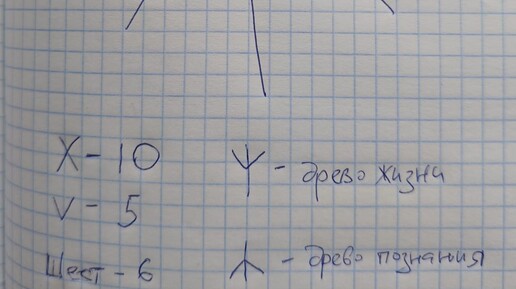 X - 10
V - 5
Шест - 6
- древо жизни
- древо познания